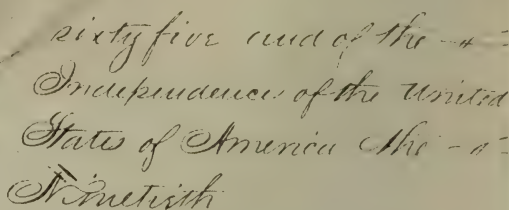 sixty five and of the
Independence of the United
States of America the
Ninetieth